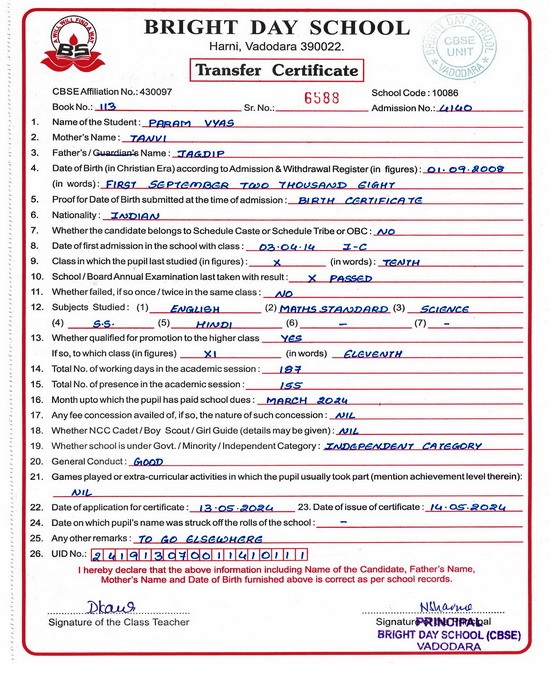 A WILL WILL FIND A WAY
BS
BRIGHT DAY SCHOOL
Harni, Vadodara 390022.
Transfer Certificate
BRIGHT DAY SCHOOL
CBSE
UNIT
VADODARA
CBSE Affiliation No.: 430097 School Code : 10086
Book No.: 113 Sr. No.: 6588 Admission No.: 4140
1. Name of the Student : PARAM VYAS
2. Mother's Name : TANVI
3. Father's / Guardian's Name : JAGDIP
4. Date of Birth (in Christian Era) according to Admission & Withdrawal Register (in figures) : 01.09.2008
(in words) : FIRST SEPTEMBER TWO THOUSAND EIGHT
5. Proof for Date of Birth submitted at the time of admission : BIRTH CERTIFICATE
6. Nationality : INDIAN
7. Whether the candidate belongs to Schedule Caste or Schedule Tribe or OBC : NO
8. Date of first admission in the school with class : 03.04.14 I-C
9. Class in which the pupil last studied (in figures) : X (in words) : TENTH
10. School / Board Annual Examination last taken with result : X PASSED
11. Whether failed, if so once / twice in the same class : NO
12. Subjects Studied : (1) ENGLISH (2) MATHS STANDARD (3) SCIENCE
(4) S.S. (5) HINDI (6) – (7) –
13. Whether qualified for promotion to the higher class YES
If so, to which class (in figures) XI (in words) ELEVENTH
14. Total No. of working days in the academic session : 187
15. Total No. of presence in the academic session : 155
16. Month upto which the pupil has paid school dues : MARCH 2024
17. Any fee concession availed of, if so, the nature of such concession : NIL
18. Whether NCC Cadet / Boy Scout / Girl Guide (details may be given) : NIL
19. Whether school is under Govt. / Minority / Independent Category : INDEPENDENT CATEGORY
20. General Conduct : GOOD
21. Games played or extra-curricular activities in which the pupil usually took part (mention achievement level therein) :
NIL
22. Date of application for certificate : 13.05.2024 23. Date of issue of certificate : 14.05.2024
24. Date on which pupil's name was struck off the rolls of the school : –
25. Any other remarks : TO GO ELSEWHERE
26. UID No.: 241913070011410111
I hereby declare that the above information including Name of the Candidate, Father's Name,
Mother's Name and Date of Birth furnished above is correct as per school records.
Signature of the Class Teacher
Signature Principal
PRINCIPAL
BRIGHT DAY SCHOOL (CBSE)
VADODARA